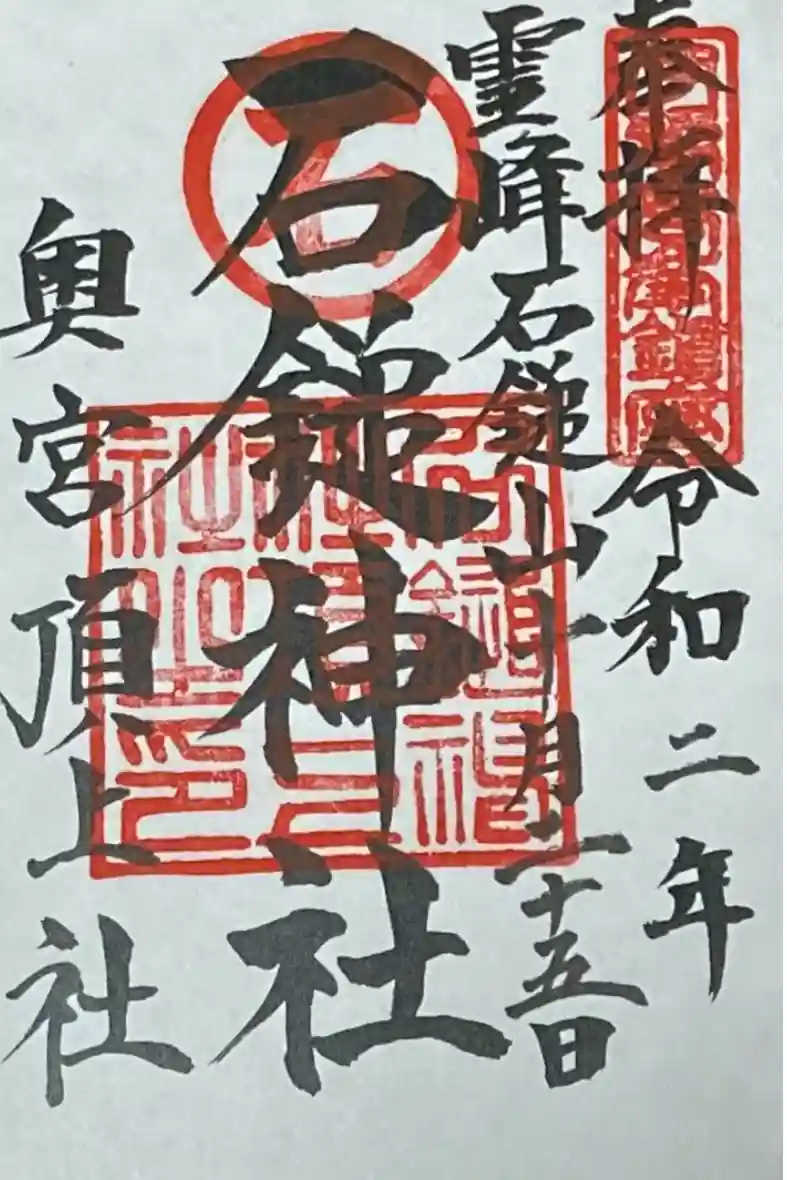 奉拝 令和二年
霊峰石鎚山 十月二十五日
石鎚神社
奥宮頂上社